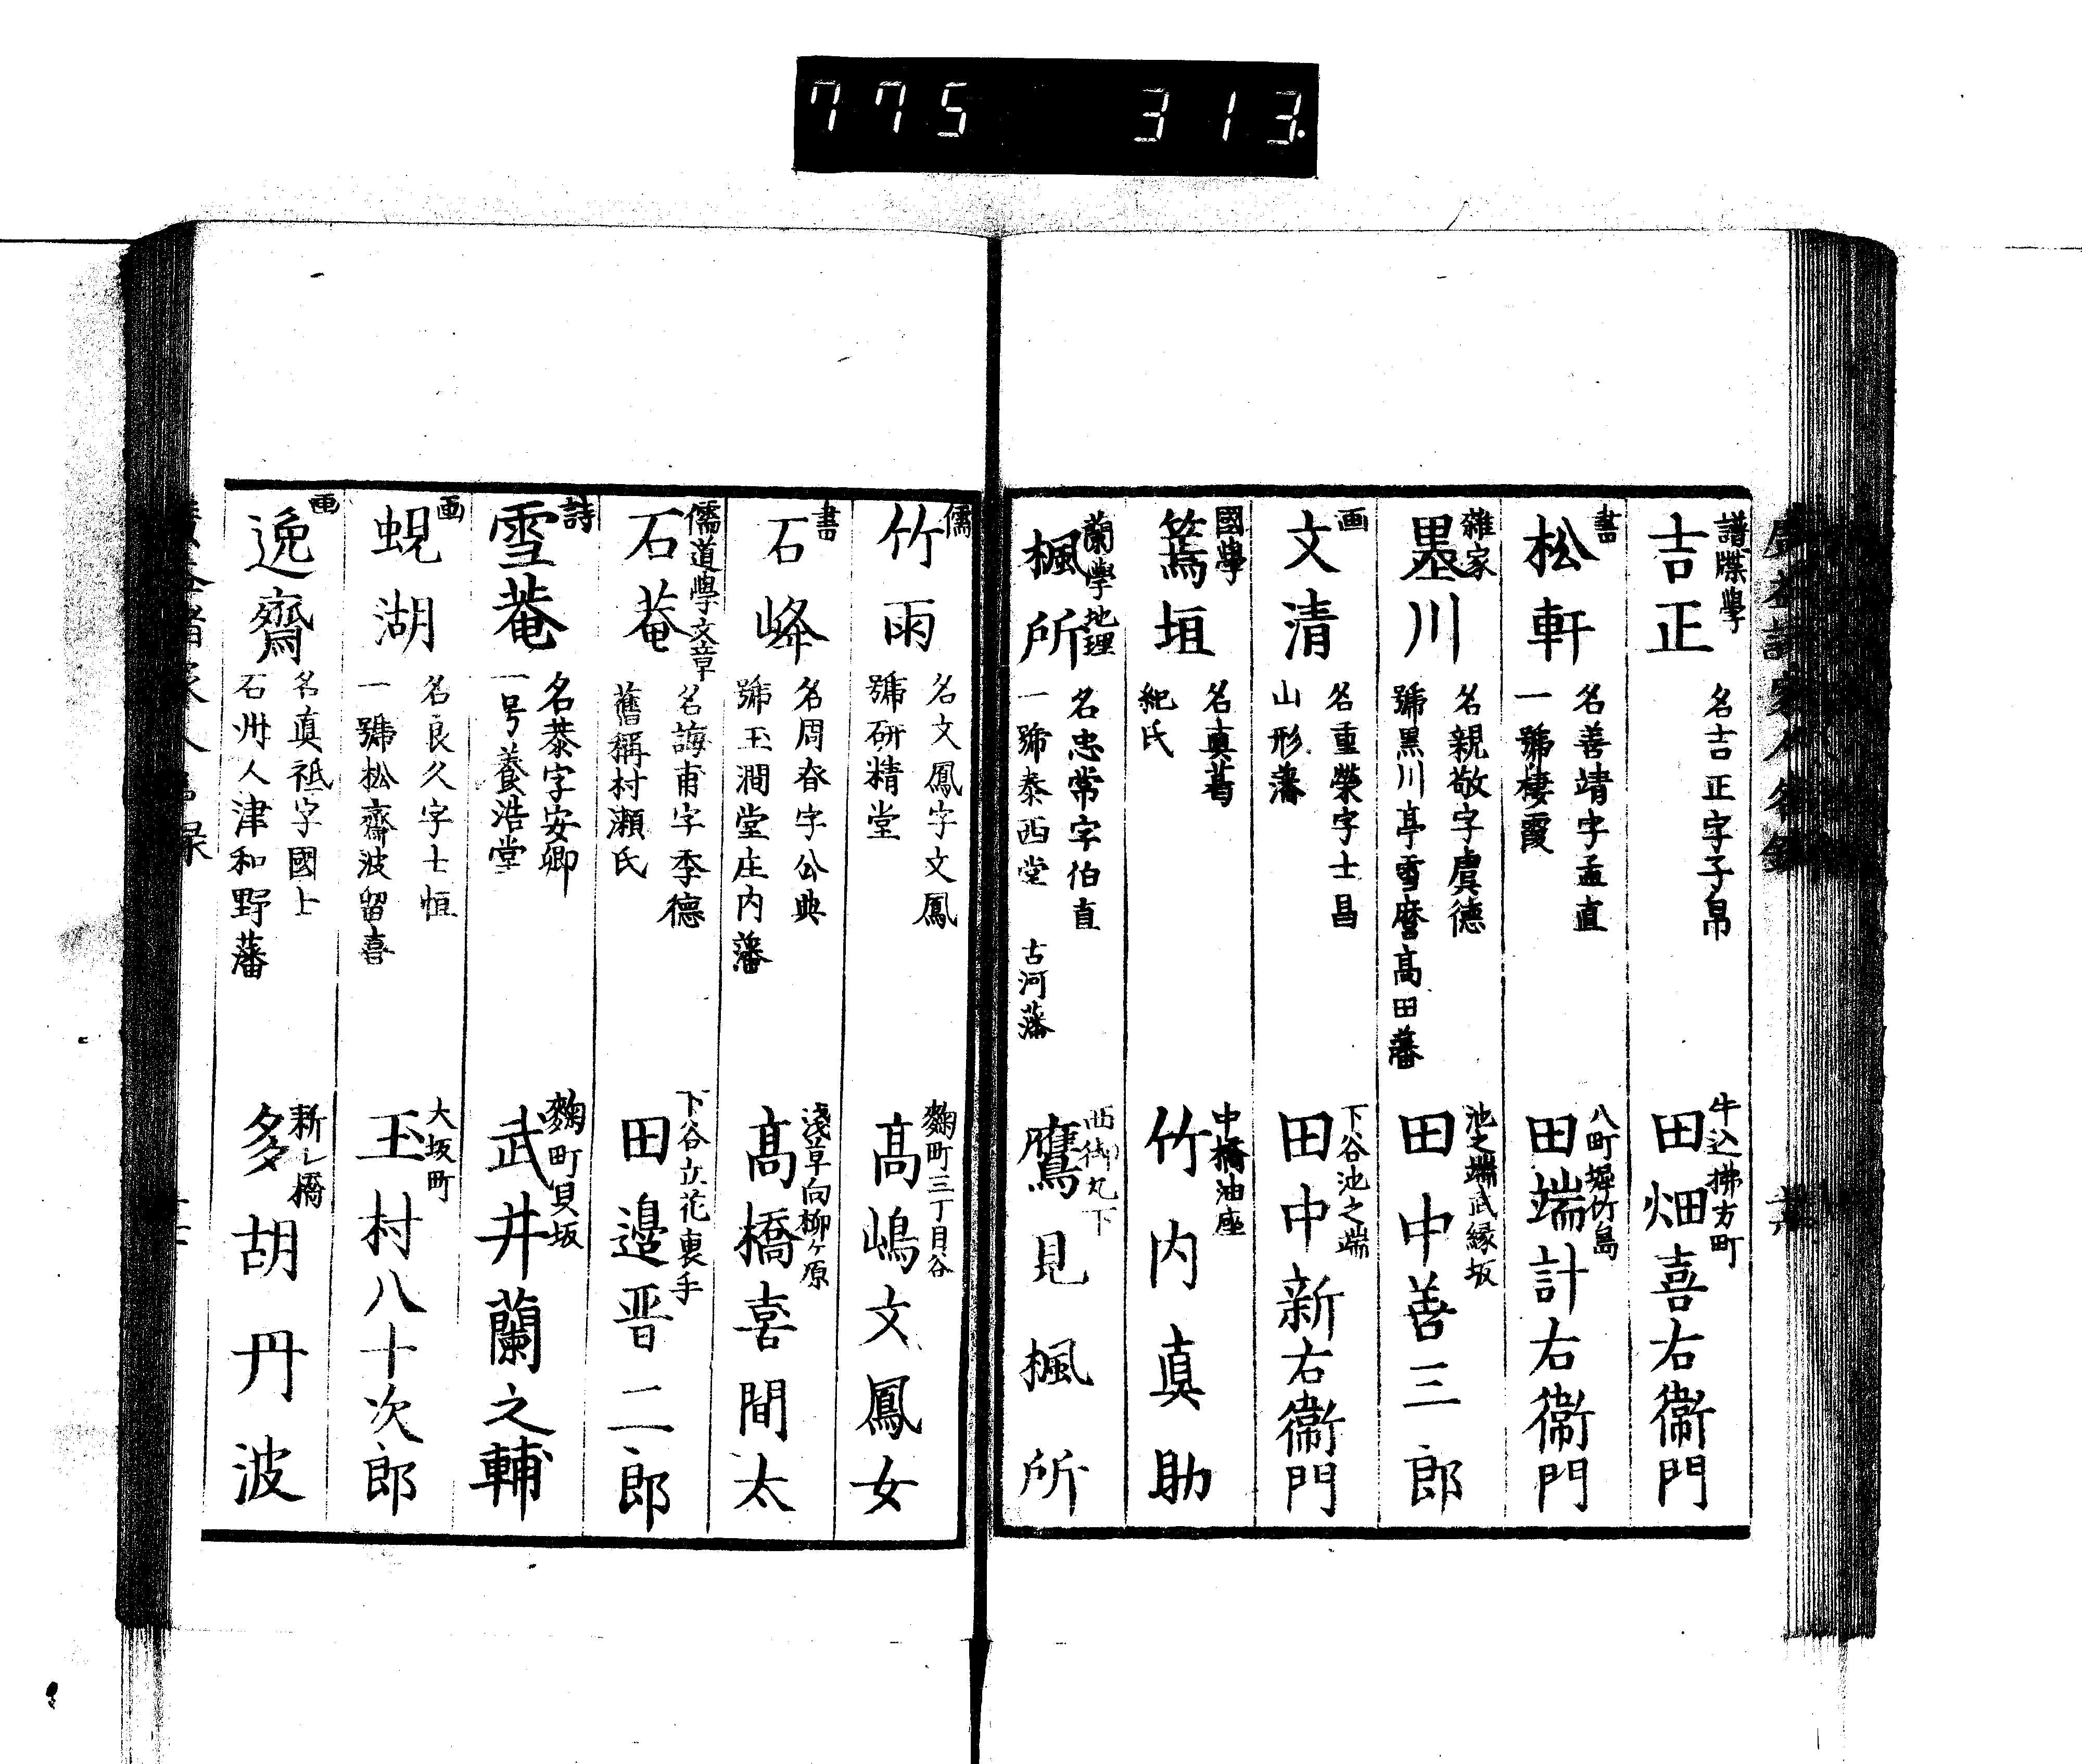 775 313
譜牒學
吉正
名吉正字子帛
牛込拂方町
田畑喜右衞門
書
松軒
名善靖字孟直
一號棲霞
八町堀竹島
田端計右衞門
雜家
墨川
名親敬字虞德
號黒川亭雪麿高田藩
池之端武縁坂
田中善三郎
画
文清
名重榮字士昌
山形藩
下谷池之端
田中新右衞門
國學
篶垣
名真葛
紀氏
中橋油座
竹内真助
蘭學地理
楓所
名忠常字伯直
一號泰西堂 古河藩
西御丸下
鷹見楓所
儒
竹雨
名文鳳字文鳳
號研精堂
麹町三丁目谷
高嶋文鳳女
書
石峰
名周春字公典
號玉澗堂庄内藩
淺草向柳ケ原
高橋喜間太
儒道學文章
石菴
名誨甫字季德
舊稱村瀬氏
下谷立花裏手
田邉晋二郎
詩
雪菴
名恭字安卿
一号養浩堂
麹町貝坂
武井蘭之輔
画
蜆湖
名良久字士恒
一號松齋波留喜
大坂町
玉村八十次郎
画
逸齋
名真祗字國上
石州人津和野藩
新シ橋
多胡丹波